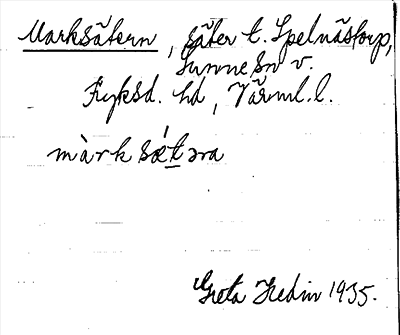 Marksätern, säter t. Spelnästorp,
Sunne sn v.
Fryksd. hd, Värml. l.
màrksǽtəra
Greta Hedin 1935.